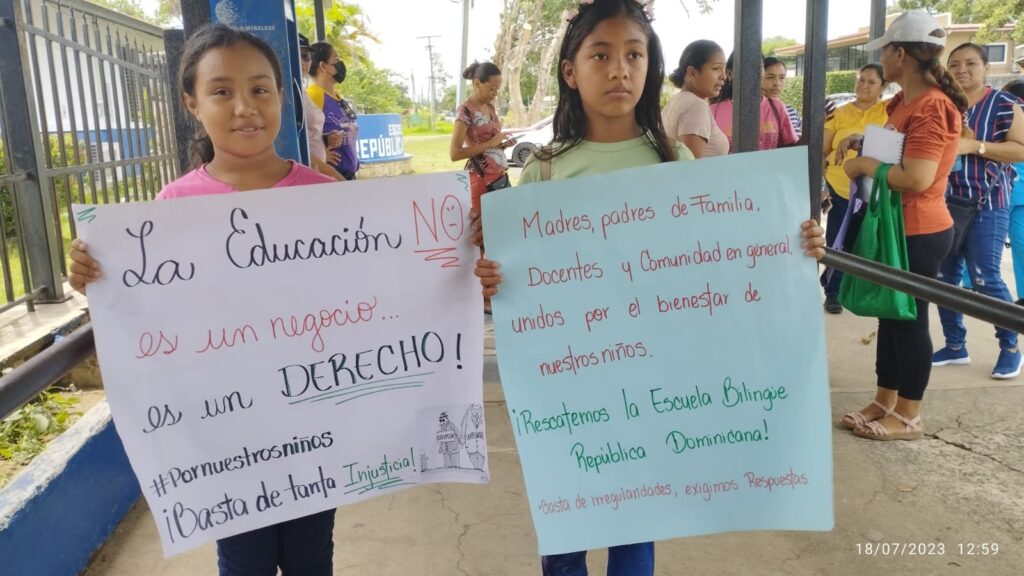 WIRELESS
REPÚBLICA
La Educación NO
es un negocio...
es un DERECHO!
#Pornuestrosniños
¡Basta de tanta Injusticia!
Madres, padres de Familia,
Docentes y Comunidad en general,
unidos por el bienestar de
nuestros niños.
¡Rescatemos la Escuela Bilingüe
República Dominicana!
Basta de irregularidades, exigimos Respuestas.
18/07/2023 12:59